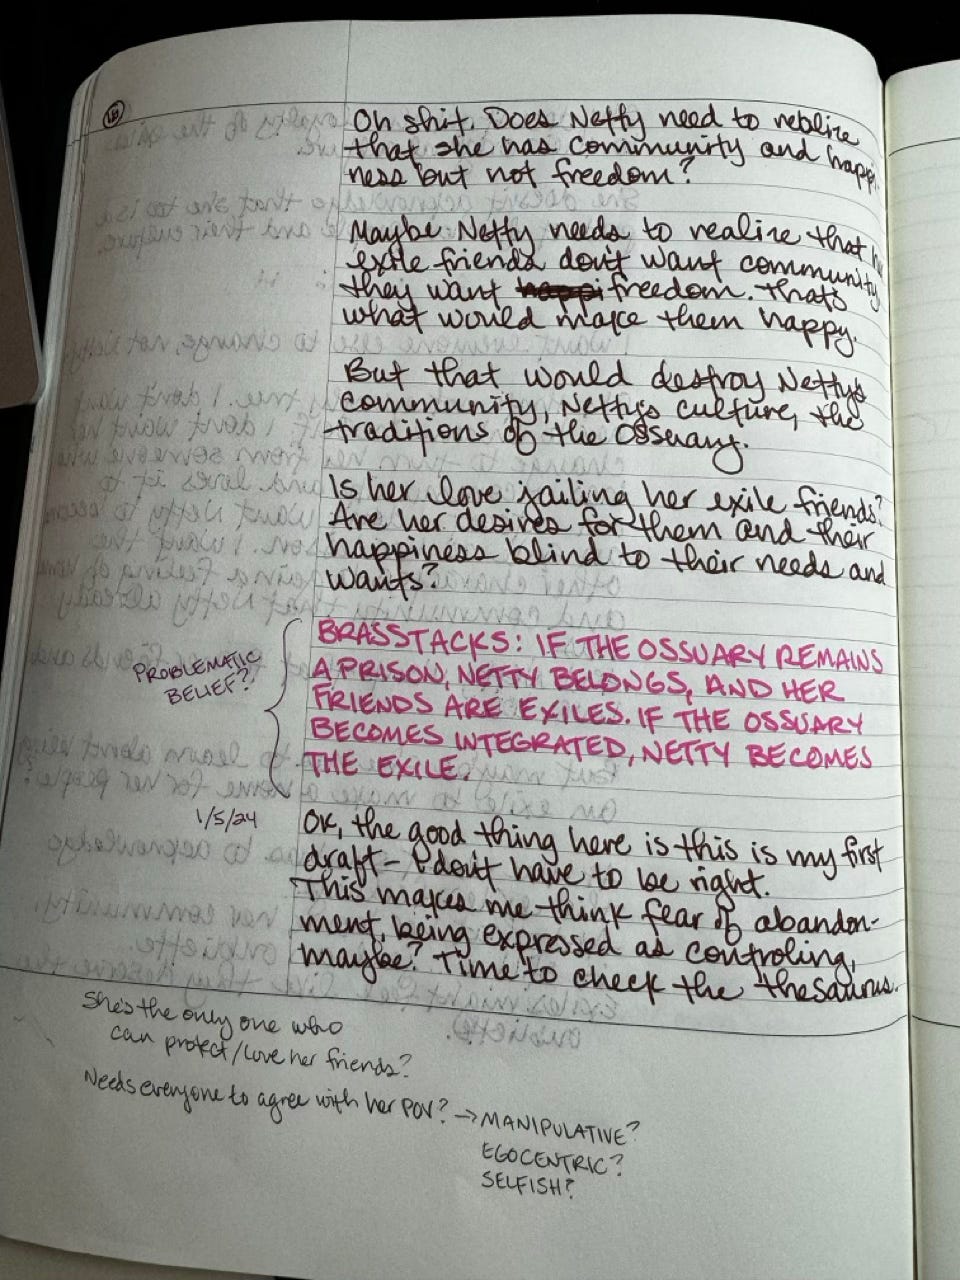 Oh shit. Does Netty need to realize
that she has community and happi
ness but not freedom?
Maybe Netty needs to realize that
exile friends don't want community
they want freedom. Thats
what would make them happy.
But that would destroy Netty's
community, Netty's culture, the
traditions of the Ossuary.
Is her love jailing her exile friends?
Are her desires for them and their
happiness blind to their needs and
wants?
PROBLEMATIC
BELIEF?
BRASSTACKS: IF THE OSSUARY REMAINS
A PRISON, NETTY BELONGS, AND HER
FRIENDS ARE EXILES. IF THE OSSUARY
BECOMES INTEGRATED, NETTY BECOMES
THE EXILE.
1/5/24
OK, the good thing here is this is my first
draft - I don't have to be right.
This makes me think fear of abandon-
ment, being expressed as controling,
maybe? Time to check the thesaurus.
She's the only one who
can protect/love her friends?
Needs everyone to agree with her POV? → MANIPULATIVE?
EGOCENTRIC?
SELFISH?